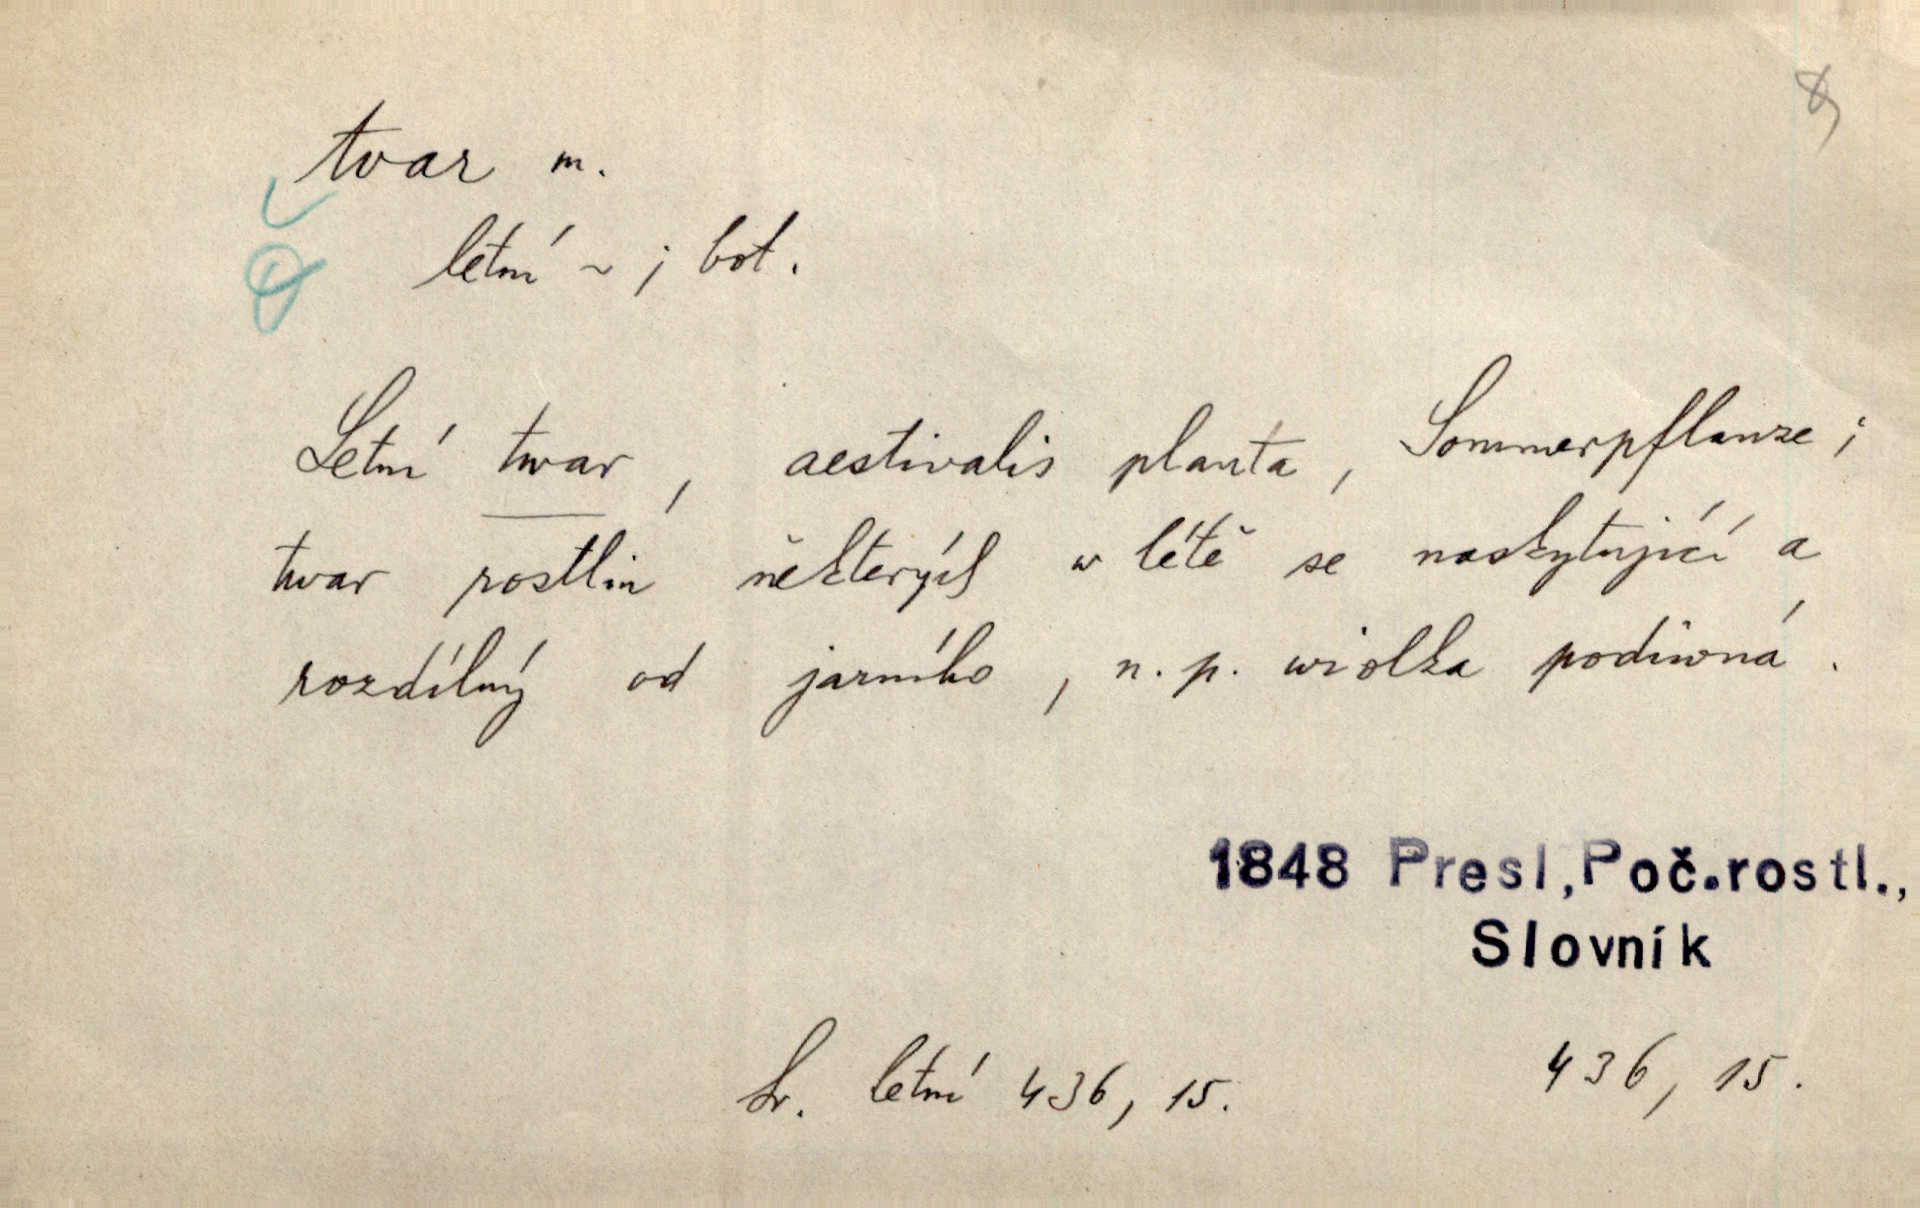 tvar m.
letní ~ ; bot.
Letní twar, aestivalis planta, Sommerpflanze ;
twar rostlin některých w létě se naskytující a
rozdílný od jarního, n. p. wiolka podiwná.
1848 Presl,Poč.rostl.,
Slovník
Sr. letní 436, 15.
436, 15.